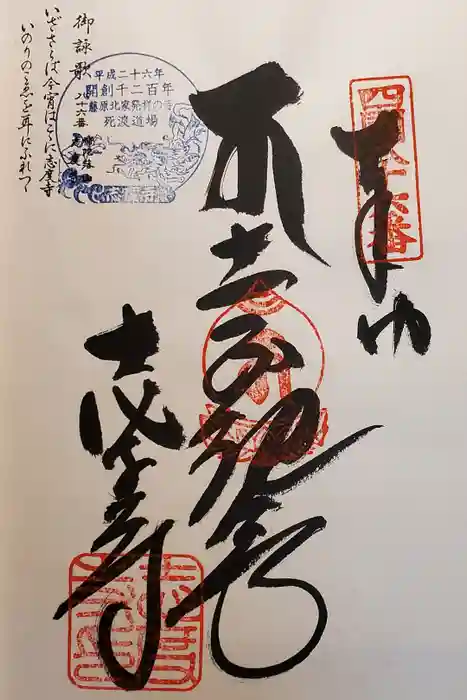 奉納
四国八十六番
十一面観音
志度寺
平成二十六年
開創千二百年
藤原北家発祥の寺
死渡道場
御詠歌 八十六番
いざさらば今宵はここに志度寺
いのりのこゑを耳にふれつつ